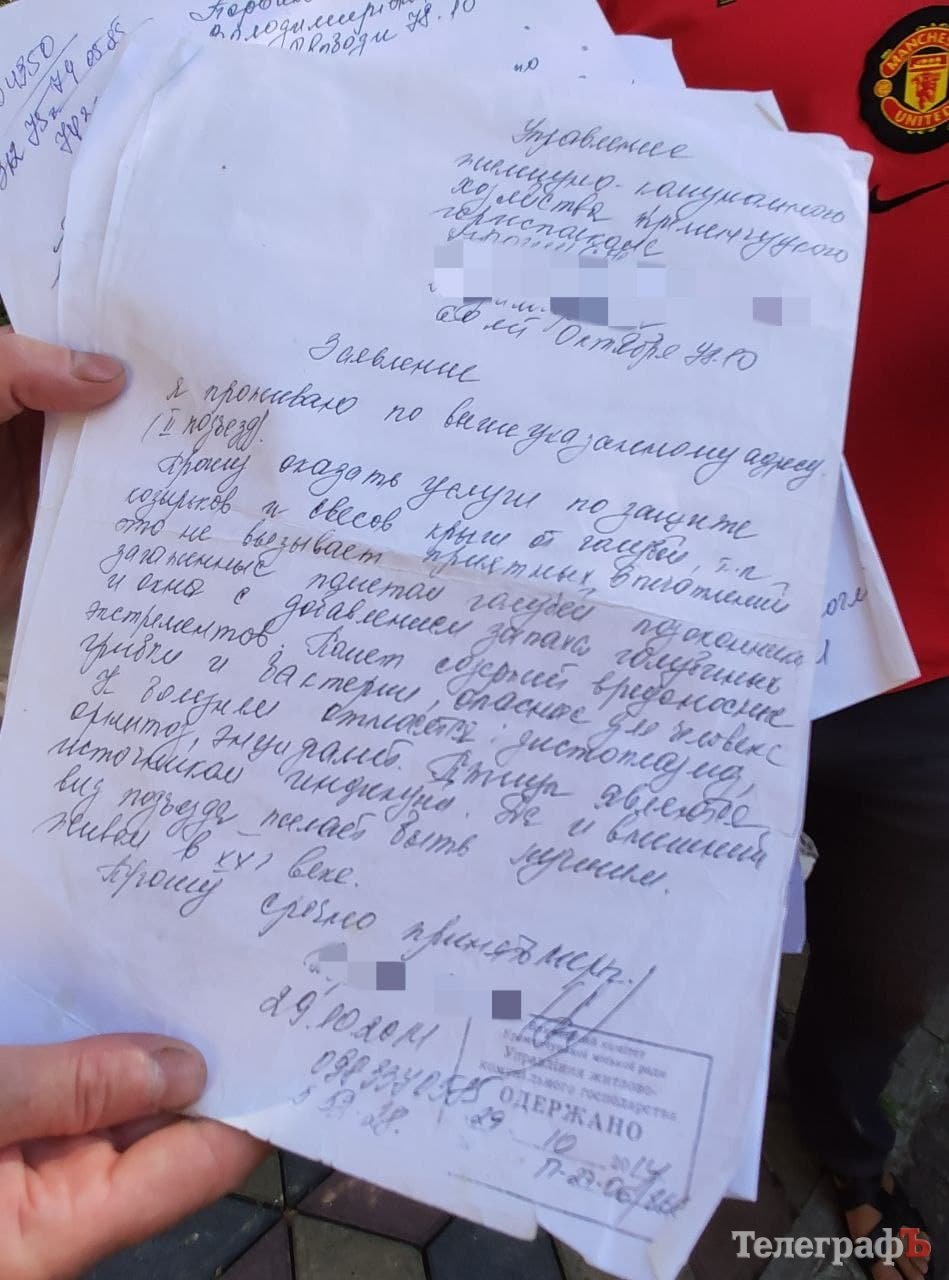 04350
Володимирівн
Свободи 78.10
MANCHESTER
UNITED
Управление
жилищно-комунального
хозяйства Кременчугского
горисполкома
60 лет Октября 78.10
Заявление
Я проживаю по вышеуказанному адресу.
(II подъезд).
Прошу оказать услуги по защите
козырьков и свесов крыш от голубей, т.к.
это не вызывает приятных впечатлений
загаженные пометом голубей подоконники
и окна с добавлением запаха голубиных
экстрементов. Помет содержит вредоносные
грибки и бактерии, опасные для человека
К болезням относятся:
орнитоз, энцефалит. Птицы являются
источником инфекции. Да и внешний
вид подъезда желает быть лучшим.
Живем в XXI веке.
Прошу срочно принять меры.
29.10.2014
Кременчуцької міської ради
Управління житлово-
комунального господарства
ОДЕРЖАНО
29 10 2014
ТелеграфЪ